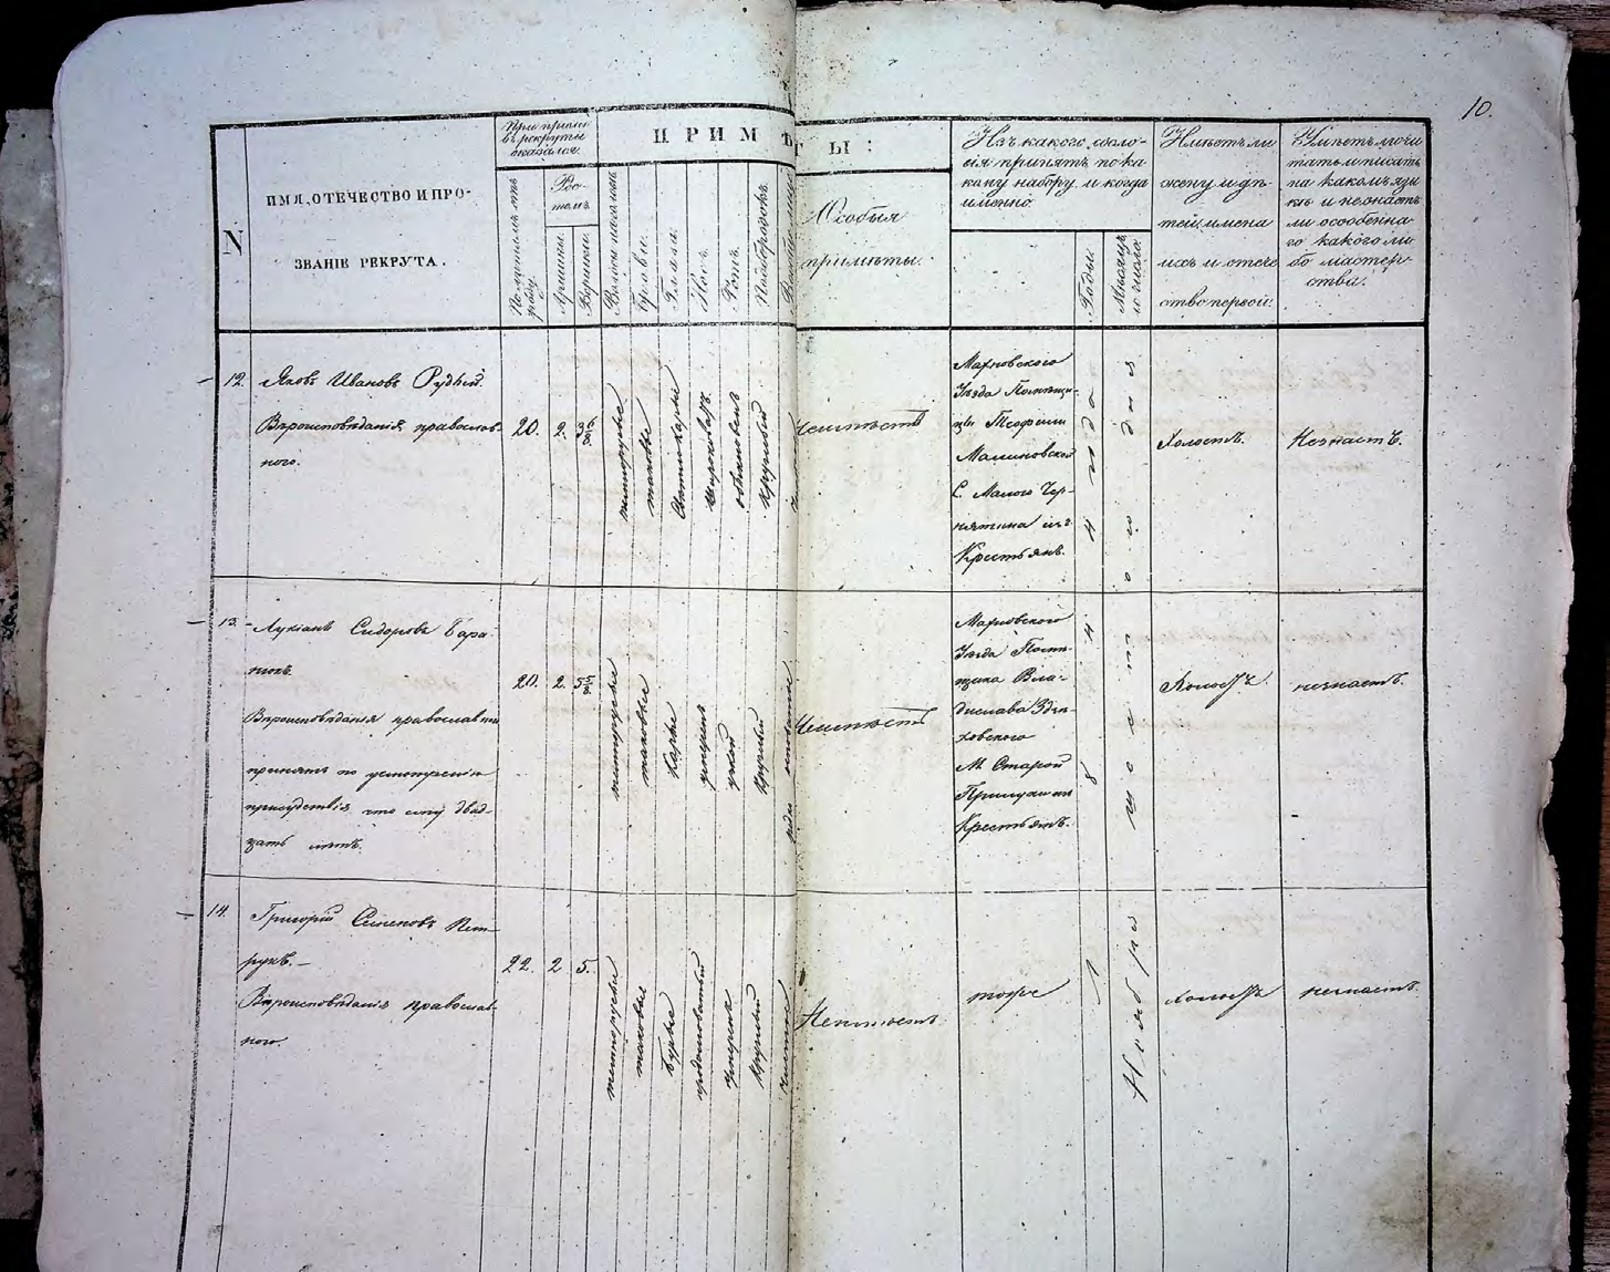 10.
N
ИМЯ, ОТЕЧЕСТВО И ПРО-
ЗВАНІЕ РЕКРУТА.
При пріемѣ
въ рекруты
оказался.
Ро-
стомъ
Аршины.
Вершки.
ПРИМѢТЫ:
Брови.
Глаза.
Носъ.
Ротъ.
Подбородокъ.
Особыя
примѣты.
Изъ какого сосло-
вія принятъ по ка
кому набору и когда
именно.
Годы.
Мѣсяцъ
и число.
Имѣетъ ли
жену и дѣ-
тей, имена
ихъ и отече
ство первой.
Умѣетъ ли чи
тать и писать
на какомъ язы
кѣ и не знаетъ
ли особенна-
го какого ли
бо мастер-
ства.
12.
Яковъ Ивановъ Рудый.
Вѣроисповѣданія православ-
ного.
20.
2.
темнорусые
таковые
обыкновенъ
круглый
Неимѣетъ
Махновского
Уѣзда Помѣщи-
цы Теофили
Малиновской
С. Малого Чер-
нятина изъ
Крестьянъ.
Холостъ.
Незнаетъ.
13.
Лукіанъ Сидоровъ Бара-
нюкъ.
Вѣроисповѣданія православны
принятъ по усмотренію
присудствія что ему двад-
цать лѣтъ.
20.
2.
темнорусые
таковые
Каріе
умеренъ
узкой
круглый
Неимѣетъ
Махновского
Уѣзда Помѣ-
щика Вла-
дислава Здзѣ-
ховского
М. Старой
Прилуки изъ
Крестьянъ.
8
Холостъ.
незнаетъ.
14.
Григорій Семеновъ Пет-
рукъ.
Вѣроисповѣданія православ-
ного.
22.
2
5.
темнорусые
таковые
бурые
продолговатый
умеренъ
круглый
чистое
Неимѣетъ
тоже
1
Ноября
холостъ
незнаетъ.